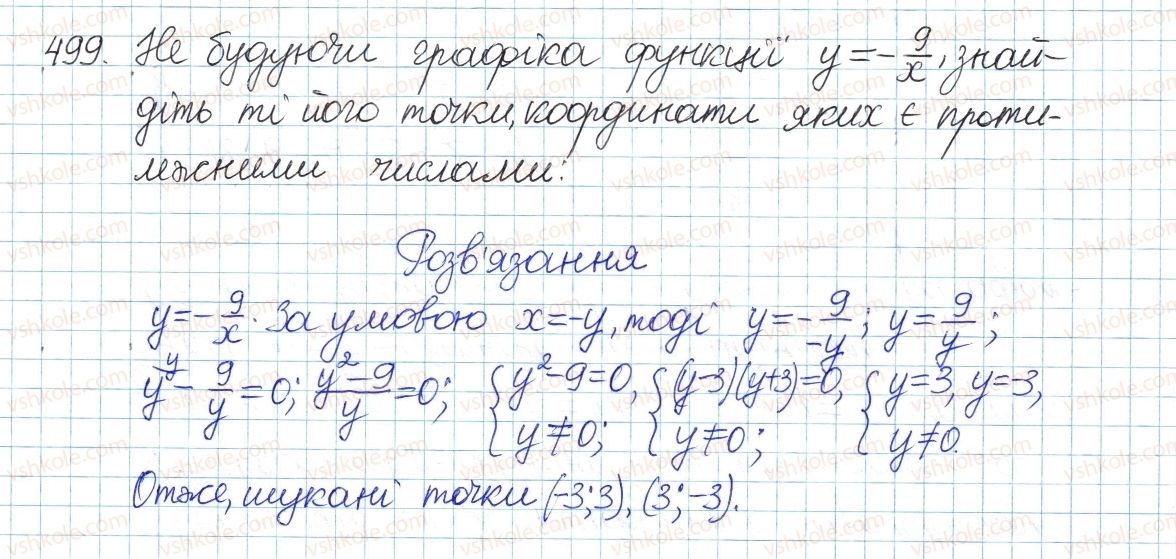 499. Не будуючи графіка функції y = -9/x, знай-
діть ті його точки, координати яких є проти-
лежними числами:
Розв'язання
y = -9/x. За умовою x = -y, тоді y = -9/-y; y = 9/y;
y^y - 9/y = 0; y²-9/y = 0; { y²-9=0, y≠0; { (y-3)(y+3)=0, y≠0; { y=3, y=-3, y≠0.
Отже, шукані точки (-3;3), (3;-3).